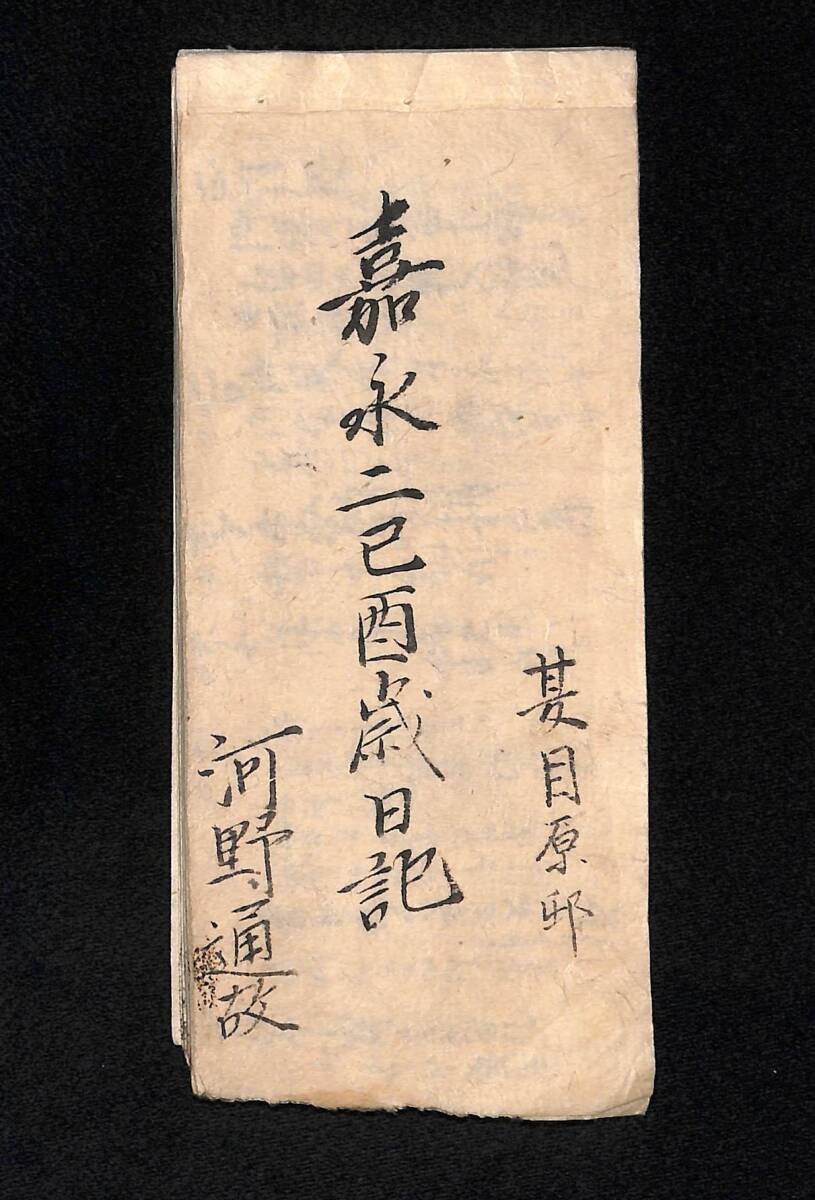 甚目原邨
嘉永二己酉歳日記
河野通故